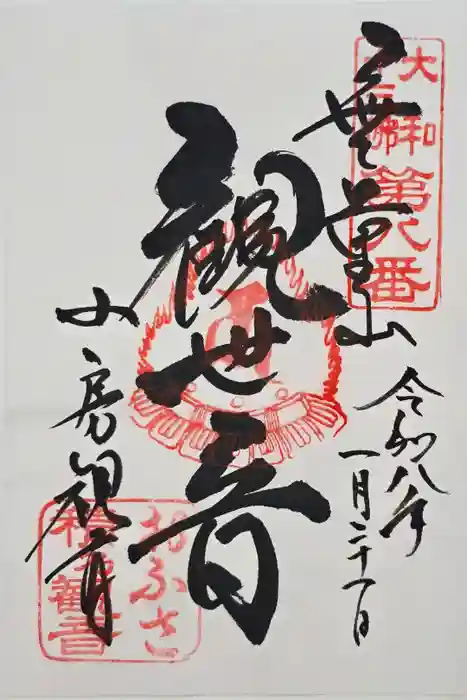 大和
十三佛
第八番
無量山
令和八年
一月二十一日
観世音
小房観音
おふさ
観音